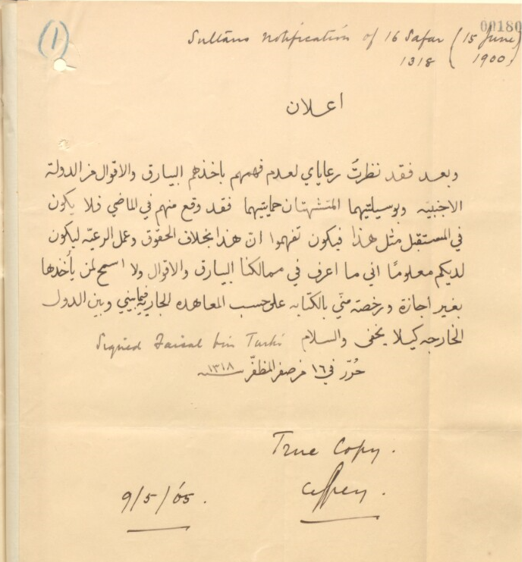 (1)
00180
Sultans Notification of 16 Safar (15 June
1318 ( 1900)
اعلان
وبعد فقد نظرت رعاياي لعدم فهمهم باخذهم البيارق والاقوال من الدولة
الاجنبيه وبوسيلتهما المتشهتان حمايتهما فقد وقع منهم في الماضي فلا يكون
في المستقبل مثل هذا فيكون تفهموا ان هذا بخلاف الحقوق وعمل الرعيّه ليكون
لديكم معلومًا اني ما اعرف في ممالكنا البيارق والاقوال ولا اسمح لمن يأخذها
بغير اجازة ورخصته منّي بالكتابه على حسب المعاهده الجاريه فيما بيني وبين الدول
الخارجه كيلا يخفى والسلام Signed Faisal bin Turki
حُرّر في ١٦ من صفر المظفّر سنه ١٣١٨
True Copy.
9/5/05.